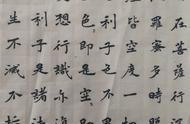 在菩薩行
羅蜜多時
皆空度一
利子色不
色即是空
想行識亦
利子是諸法
生不滅不垢